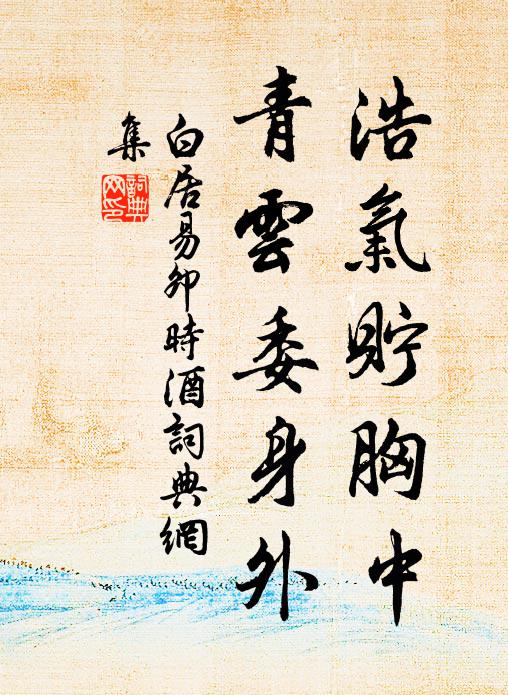 浩氣貯胸中
青雲委身外
白居易卯時酒詞典網
集
詞典
网印